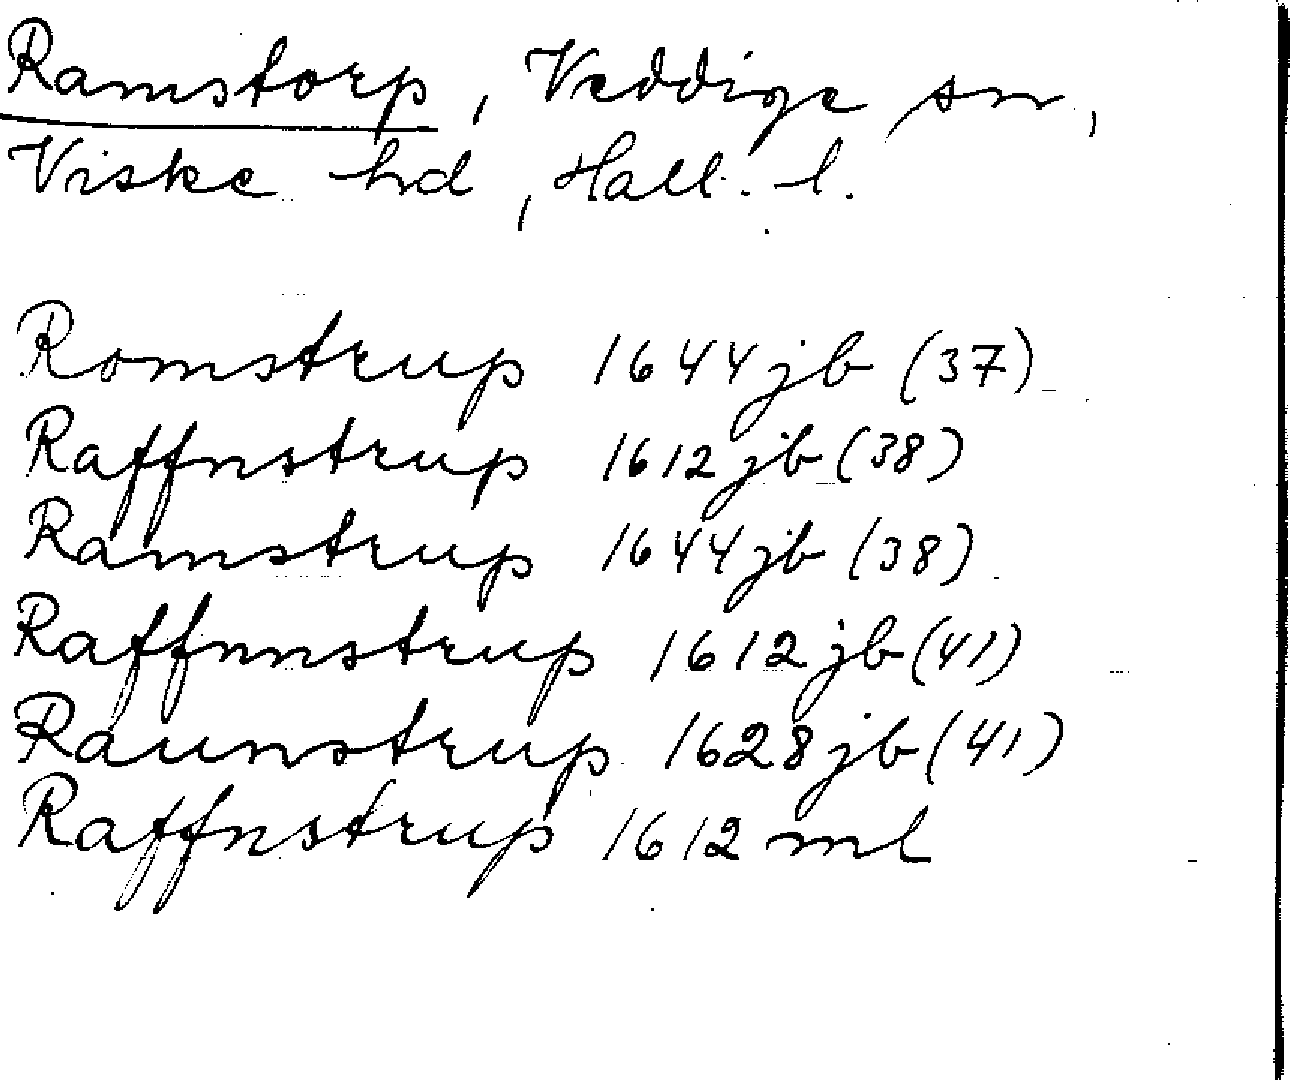 Ramstorp, Veddige sn,
Viske hd, Hall. l.
Romstrup 1644 jb (37)
Raffnstrup 1612 jb (38)
Ramstrup 1644 jb (38)
Raffnnstrup 1612 jb (41)
Raunstrup 1628 jb (41)
Raffnstrup 1612 ml